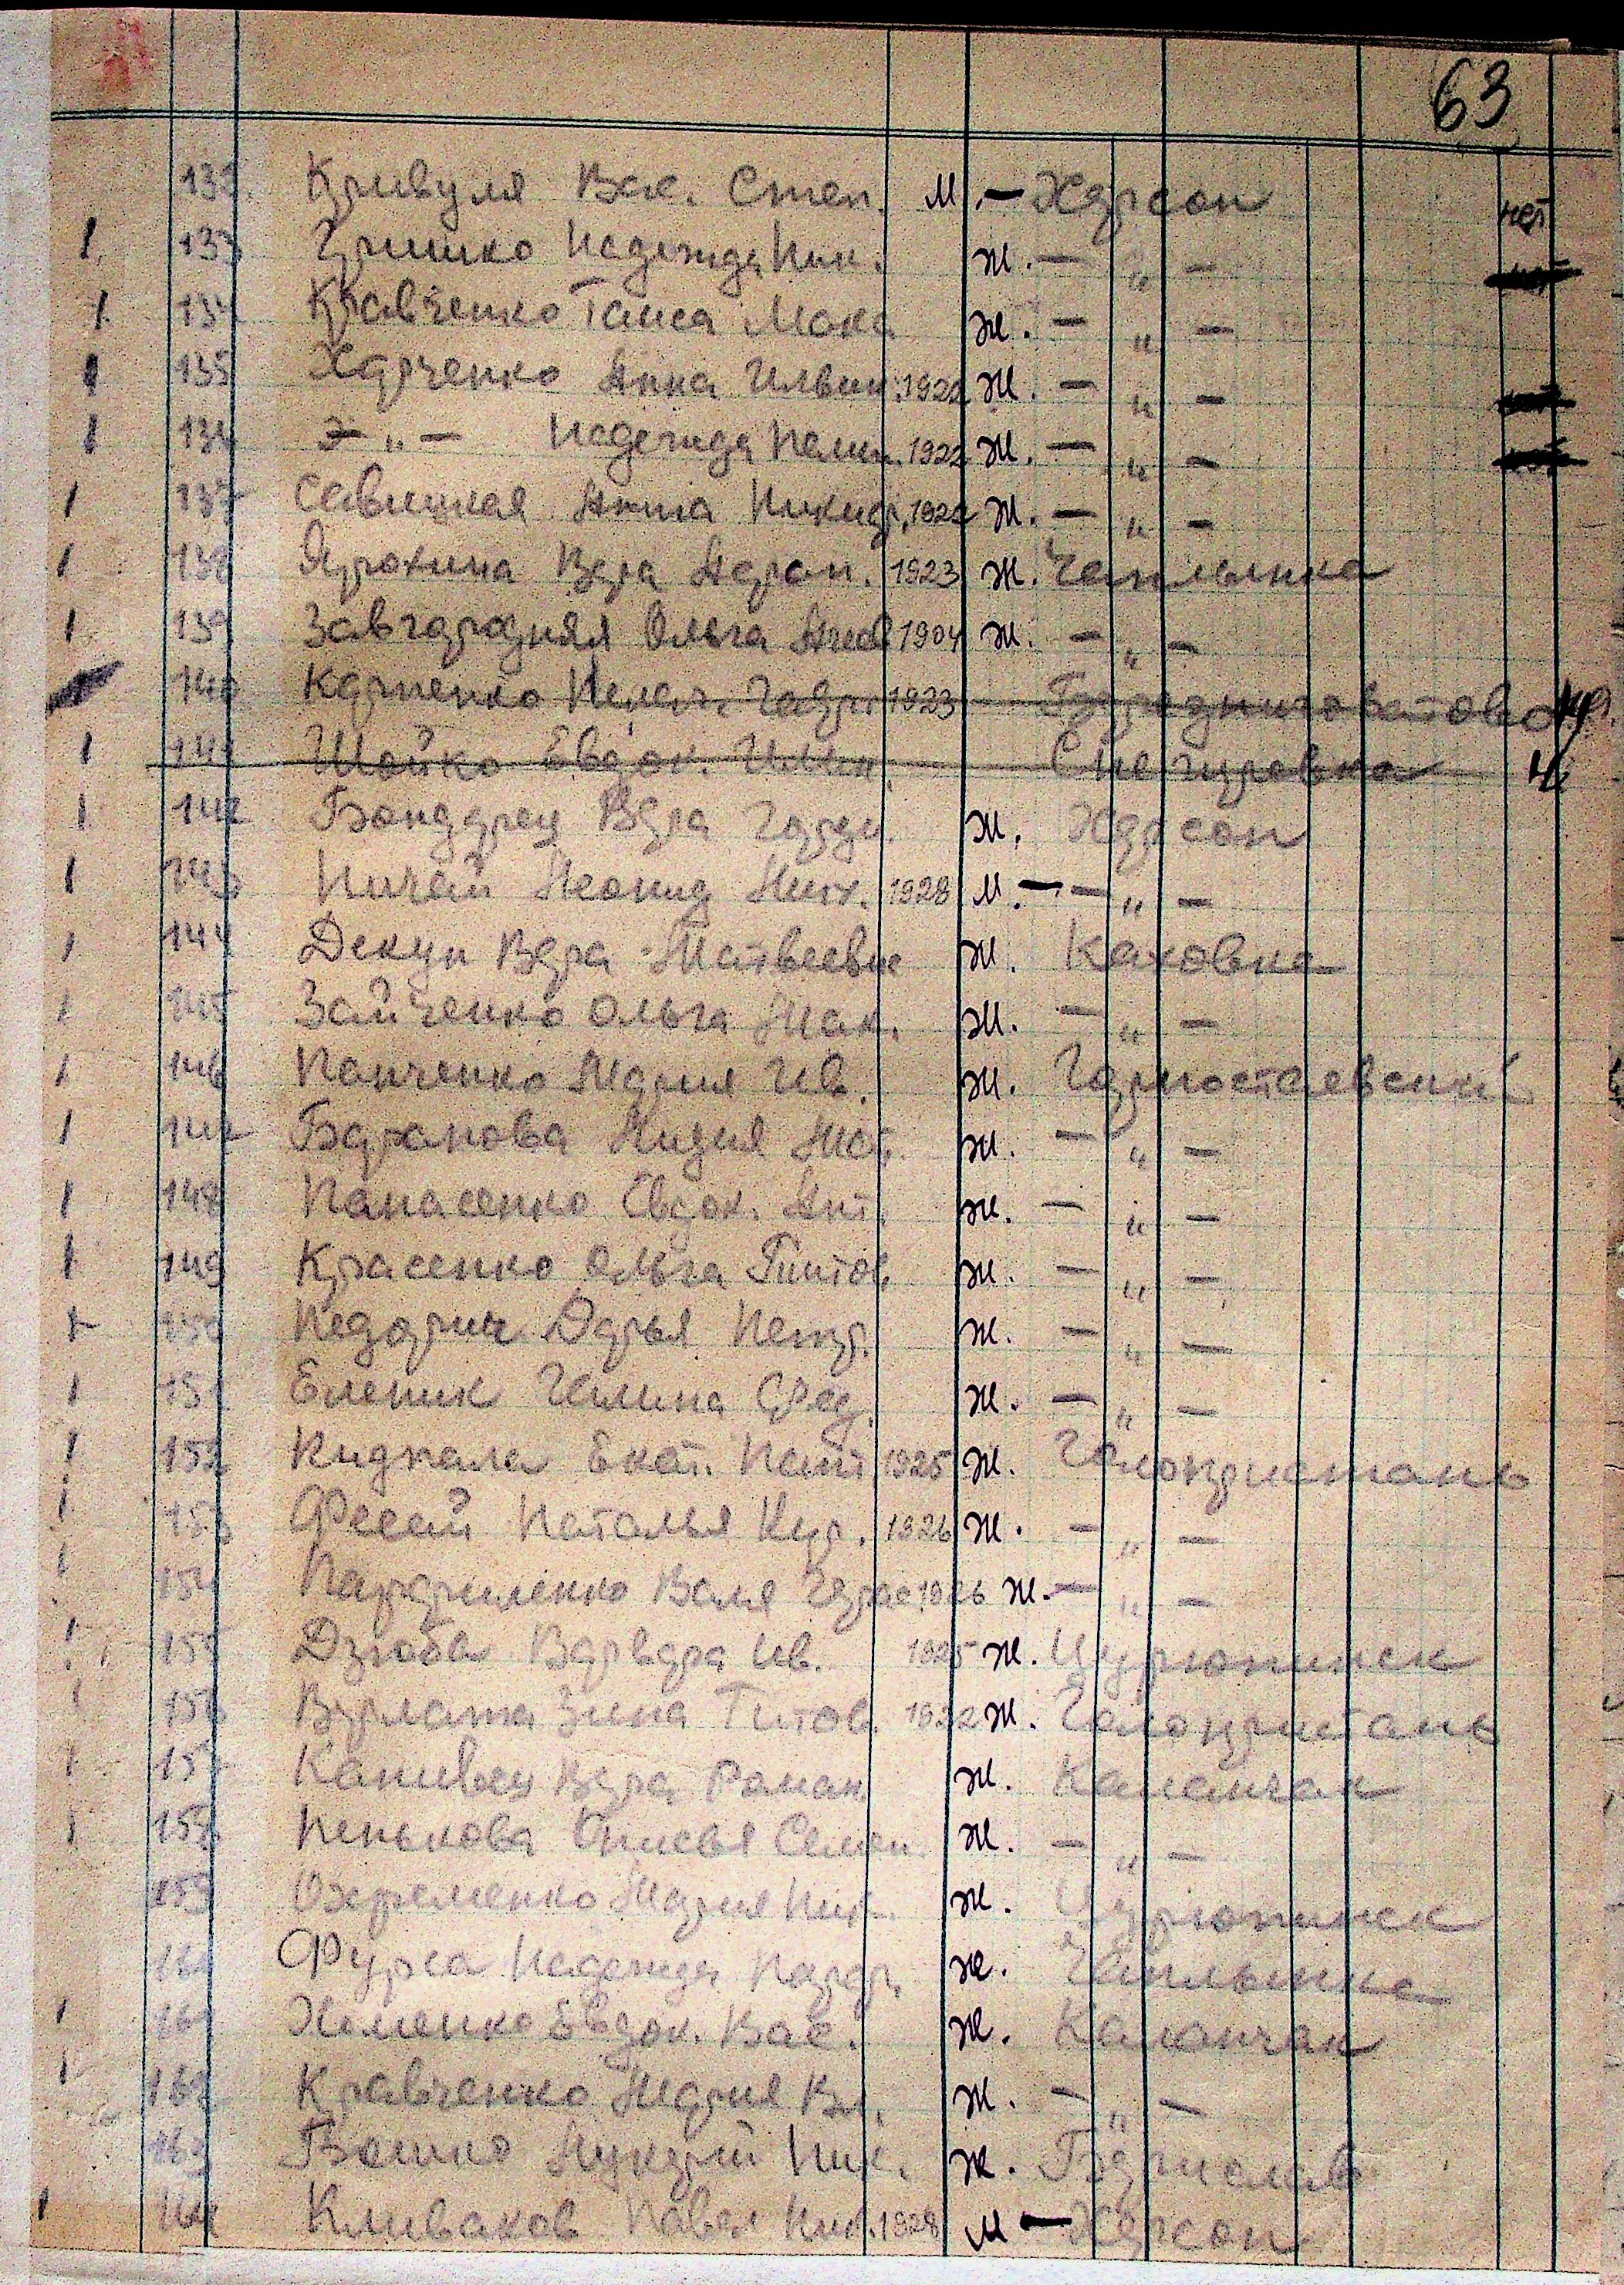 63
132 Кривуля Вас. Степ. М. — Херсон нет
133 Гришко Надежда Ник. ж. — „ —
134 Кравченко Таиса Мака ж. — „ —
135 Харченко Анна Ильин. 1922 ж. — „ —
136 — „ — Надежда 1922 ж. — „ —
137 Савицкая Анна Никиф. 1922 ж. — „ —
138 Ярохина Вера Афан. 1923 ж. Чаплынка
139 Завгородняя Ольга 1904 ж. — „ —
140 Карпенко Пелаг. 1923
141 Шойко Евдок. Снегуровка
142 Бондарец Вера Горди. ж. Херсон
143 Ничай Леонид Мих. 1928 М. — — „ —
144 Декун Вера Матвеевне ж. Каховка
145 Зайченко Ольга Мак. ж. — „ —
146 Панченко Мария Ив. ж. Горностаевский
147 Баранова Лидия Мат. ж. — „ —
148 Панасенко Евдок. Ант. ж. — „ —
149 Красенко Ольга Титов. ж. — „ —
150 Дарья Петр. ж. — „ —
151 Еленик Фед. ж. — „ —
152 Кидпала Екат. 1925 ж. Голопристань
153 Фесай Наталья 1926 ж. — „ —
154 Валя Герас. 1926 ж. — „ —
155 Дзюба Варвара Ив. 1925 ж. Цурюпинск
156 Зина Титов. 1922 ж. Голопристань
157 Канивец Вера Роман. ж. Каланчак
158 Пенькова Семен. ж. — „ —
159 Охременко Мария Ник. ж. Цурюпинск
160 Фурса Надежда ж. Чаплынка
161 Хоменко Евдок. Вас. ж. Каланчак
162 Кравченко Мария Вл. ж. — „ —
163 Бошко Лукерий Ник. ж. Берислав
164 Кливаков Павел Ник. 1928 М — Херсон